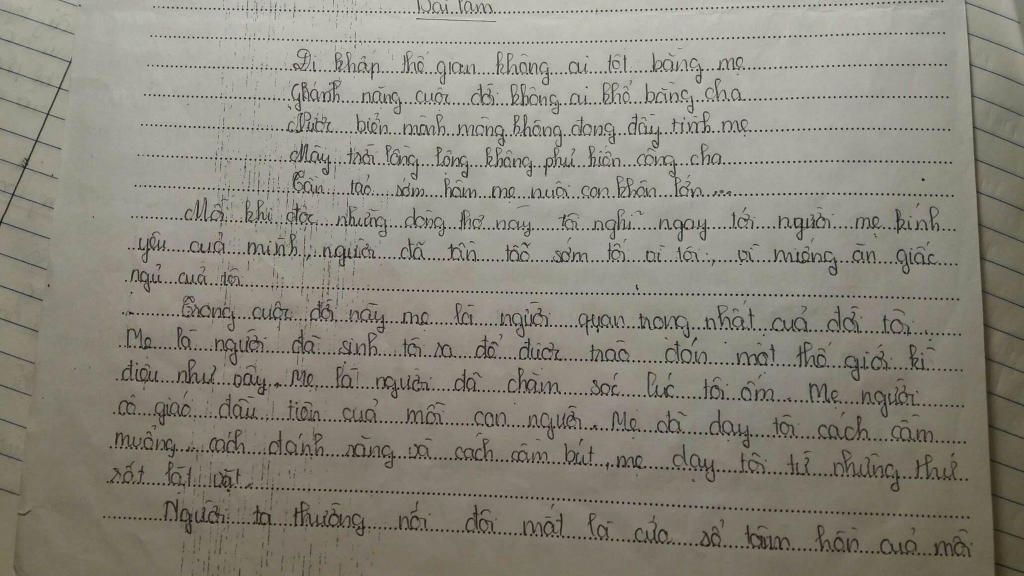 Bài làm
Đi khắp thế gian không ai tốt bằng mẹ
Ghánh nặng cuộc đời không ai khổ bằng cha
Nước biển mênh mông không đong đầy tình mẹ
Mây trời lồng lộng không phủ kiến công cha
Tần tảo sớm hôm mẹ nuôi con khôn lớn....
Mỗi khi đọc những dòng thơ này tôi nghĩ ngay tới người mẹ kính
yêu cuả mình, người đã tần tảo sớm tối vì tôi, vì miếng ăn giấc
ngủ cuả tôi
Trong cuộc đời này mẹ là người quan trọng nhất cuả đời tôi.
Mẹ là người đã sinh tôi ra để được trào đón một thế giới kì
diệu như vậy. Mẹ là người đã chăm sóc lúc tôi ốm. Mẹ người
cô giáo đầu tiên cuả mỗi con người. Mẹ đã dạy tôi cách cầm
muỗng, cách đánh răng và cách cầm bút, mẹ dạy tôi từ những thứ
rất lặt vặt.
Người ta thường nói đôi mắt là cửa sổ tâm hồn cuả mỗi